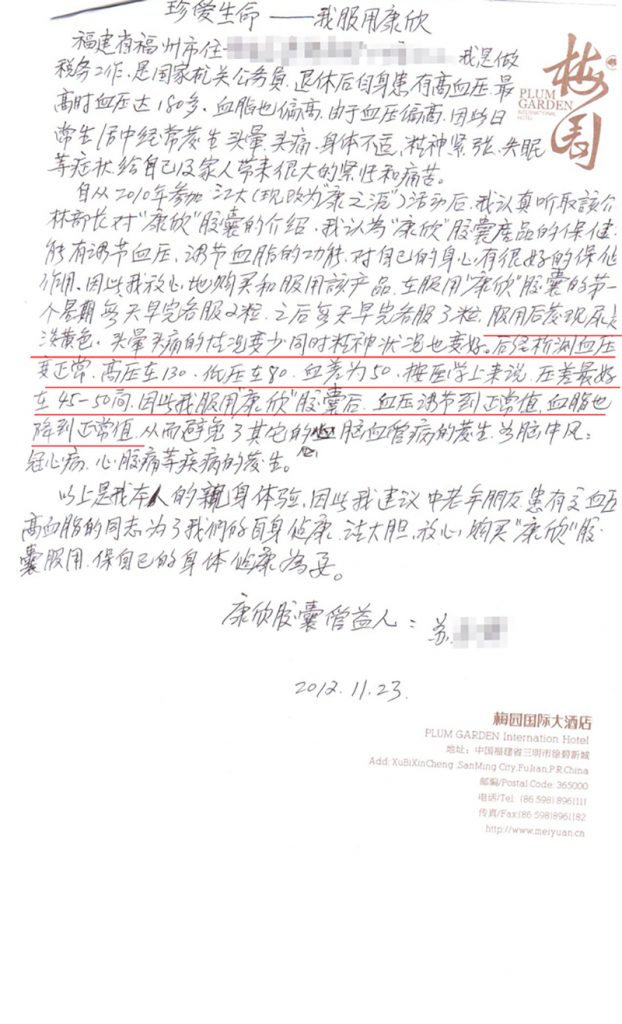 珍爱生命——我服用康欣
梅园
PLUM
GARDEN
INTERNATIONAL
HOTEL
福建省福州市住 我是做
税务工作,是国家机关公务员,退休后自身患有高血压,最
高时血压达180多,血脂也偏高,由于血压偏高,因此日
常生活中经常发生头晕、头痛,身体不适,精神紧张,失眠
等症状给自己及家人带来很大的紧张和痛苦。
自从2010年参加江大(现改为“康之源”)活动后,我认真听取该介
林部长对“康欣”胶囊的介绍,我认为“康欣”胶囊产品的保健
能有调节血压,调节血脂的功能,对自己的身心有很好的保健
作用,因此我放心地购买和服用該产品,在服用“康欣”胶囊的第一
个星期每天早完各服2粒,之后每天早完各服了粒,服用后发现尿是
淡黄色,头晕头痛的情况变少同时精神状况也变好。后经检测血压
变正常,高压在130,低压在80,血差为50,按医学上来说,压差最好
在45-50间,因此我服用“康欣”胶囊后,血压调节到正常值,血脂也
降到正常值,从而避免了其它的心脑血管病的发生,如脑中风,
冠心病,心脏病等疾病的发生。
以上是我本人的親身体验,因此我建议中老年朋友患有高血压
高血脂的同志为了我们的自身健康,请大胆,放心,购买“康欣”胶
囊服用,保自己的身体健康為妥。
康欣胶囊受益人:苏
2012.11.23.
梅园国际大酒店
PLUM GARDEN International Hotel
地址:中国福建省三明市徐碧新城
Add: XuBiXinCheng,SanMing City,Fujian,P.R.China
邮编/Postal Code: 365000
电话/Tel: (86 598) 8961111
传真/Fax:(86 598)8961182
http://www.meiyuan.cn